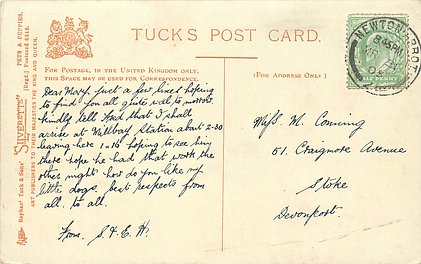 TUCK'S POST CARD.
FOR POSTAGE, IN THE UNITED KINGDOM ONLY,
THIS SPACE MAY BE USED FOR CORRESPONDENCE.
(FOR ADDRESS ONLY)
Dear Mary. Just a few lines hoping
to find you all quite well to morrow.
kindly tell that I shall
arrive at Millbay Station about 2-30
leaving here 1-16 hoping to see him
there hope he had that work the
other night how do you like my
little dogs. best respects from
all. to all.
From. S. & E. H.
Miss. M. Conning
51. Craigmore Avenue
Stoke
Devonport.
NEWTON ABBOT
HALF PENNY
Raphael Tuck & Sons' "SILVERETTE"
ART PUBLISHERS TO THEIR MAJESTIES THE KING AND QUEEN.
[Regd.] Postcard
PETS & PUPPIES.